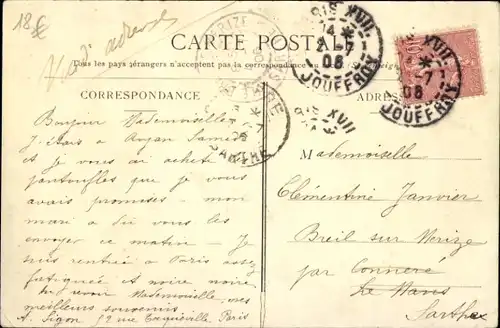 18€
CARTE POSTALE
Tous les pays étrangers n'acceptent pas la correspondance au
CORRESPONDANCE
PARIS XVII
14 *
2-7
08
JOUFFROY
SARTHE
Bonjour Mademoiselle
J'étais à Samedi
et je vous ai acheté
pantoufles que je vous
avais promises - mon
mari a dû vous les
envoyer ce matin - Je
suis rentrée à Paris assez
fatiguée et noire noire
Au revoir Mademoiselle, mes
meilleurs souvenirs
A. Sigon 52 rue Paris
Mademoiselle
Clémentine Janvier
Breil sur Merize
par Connerré
Le Mans
Sarthe